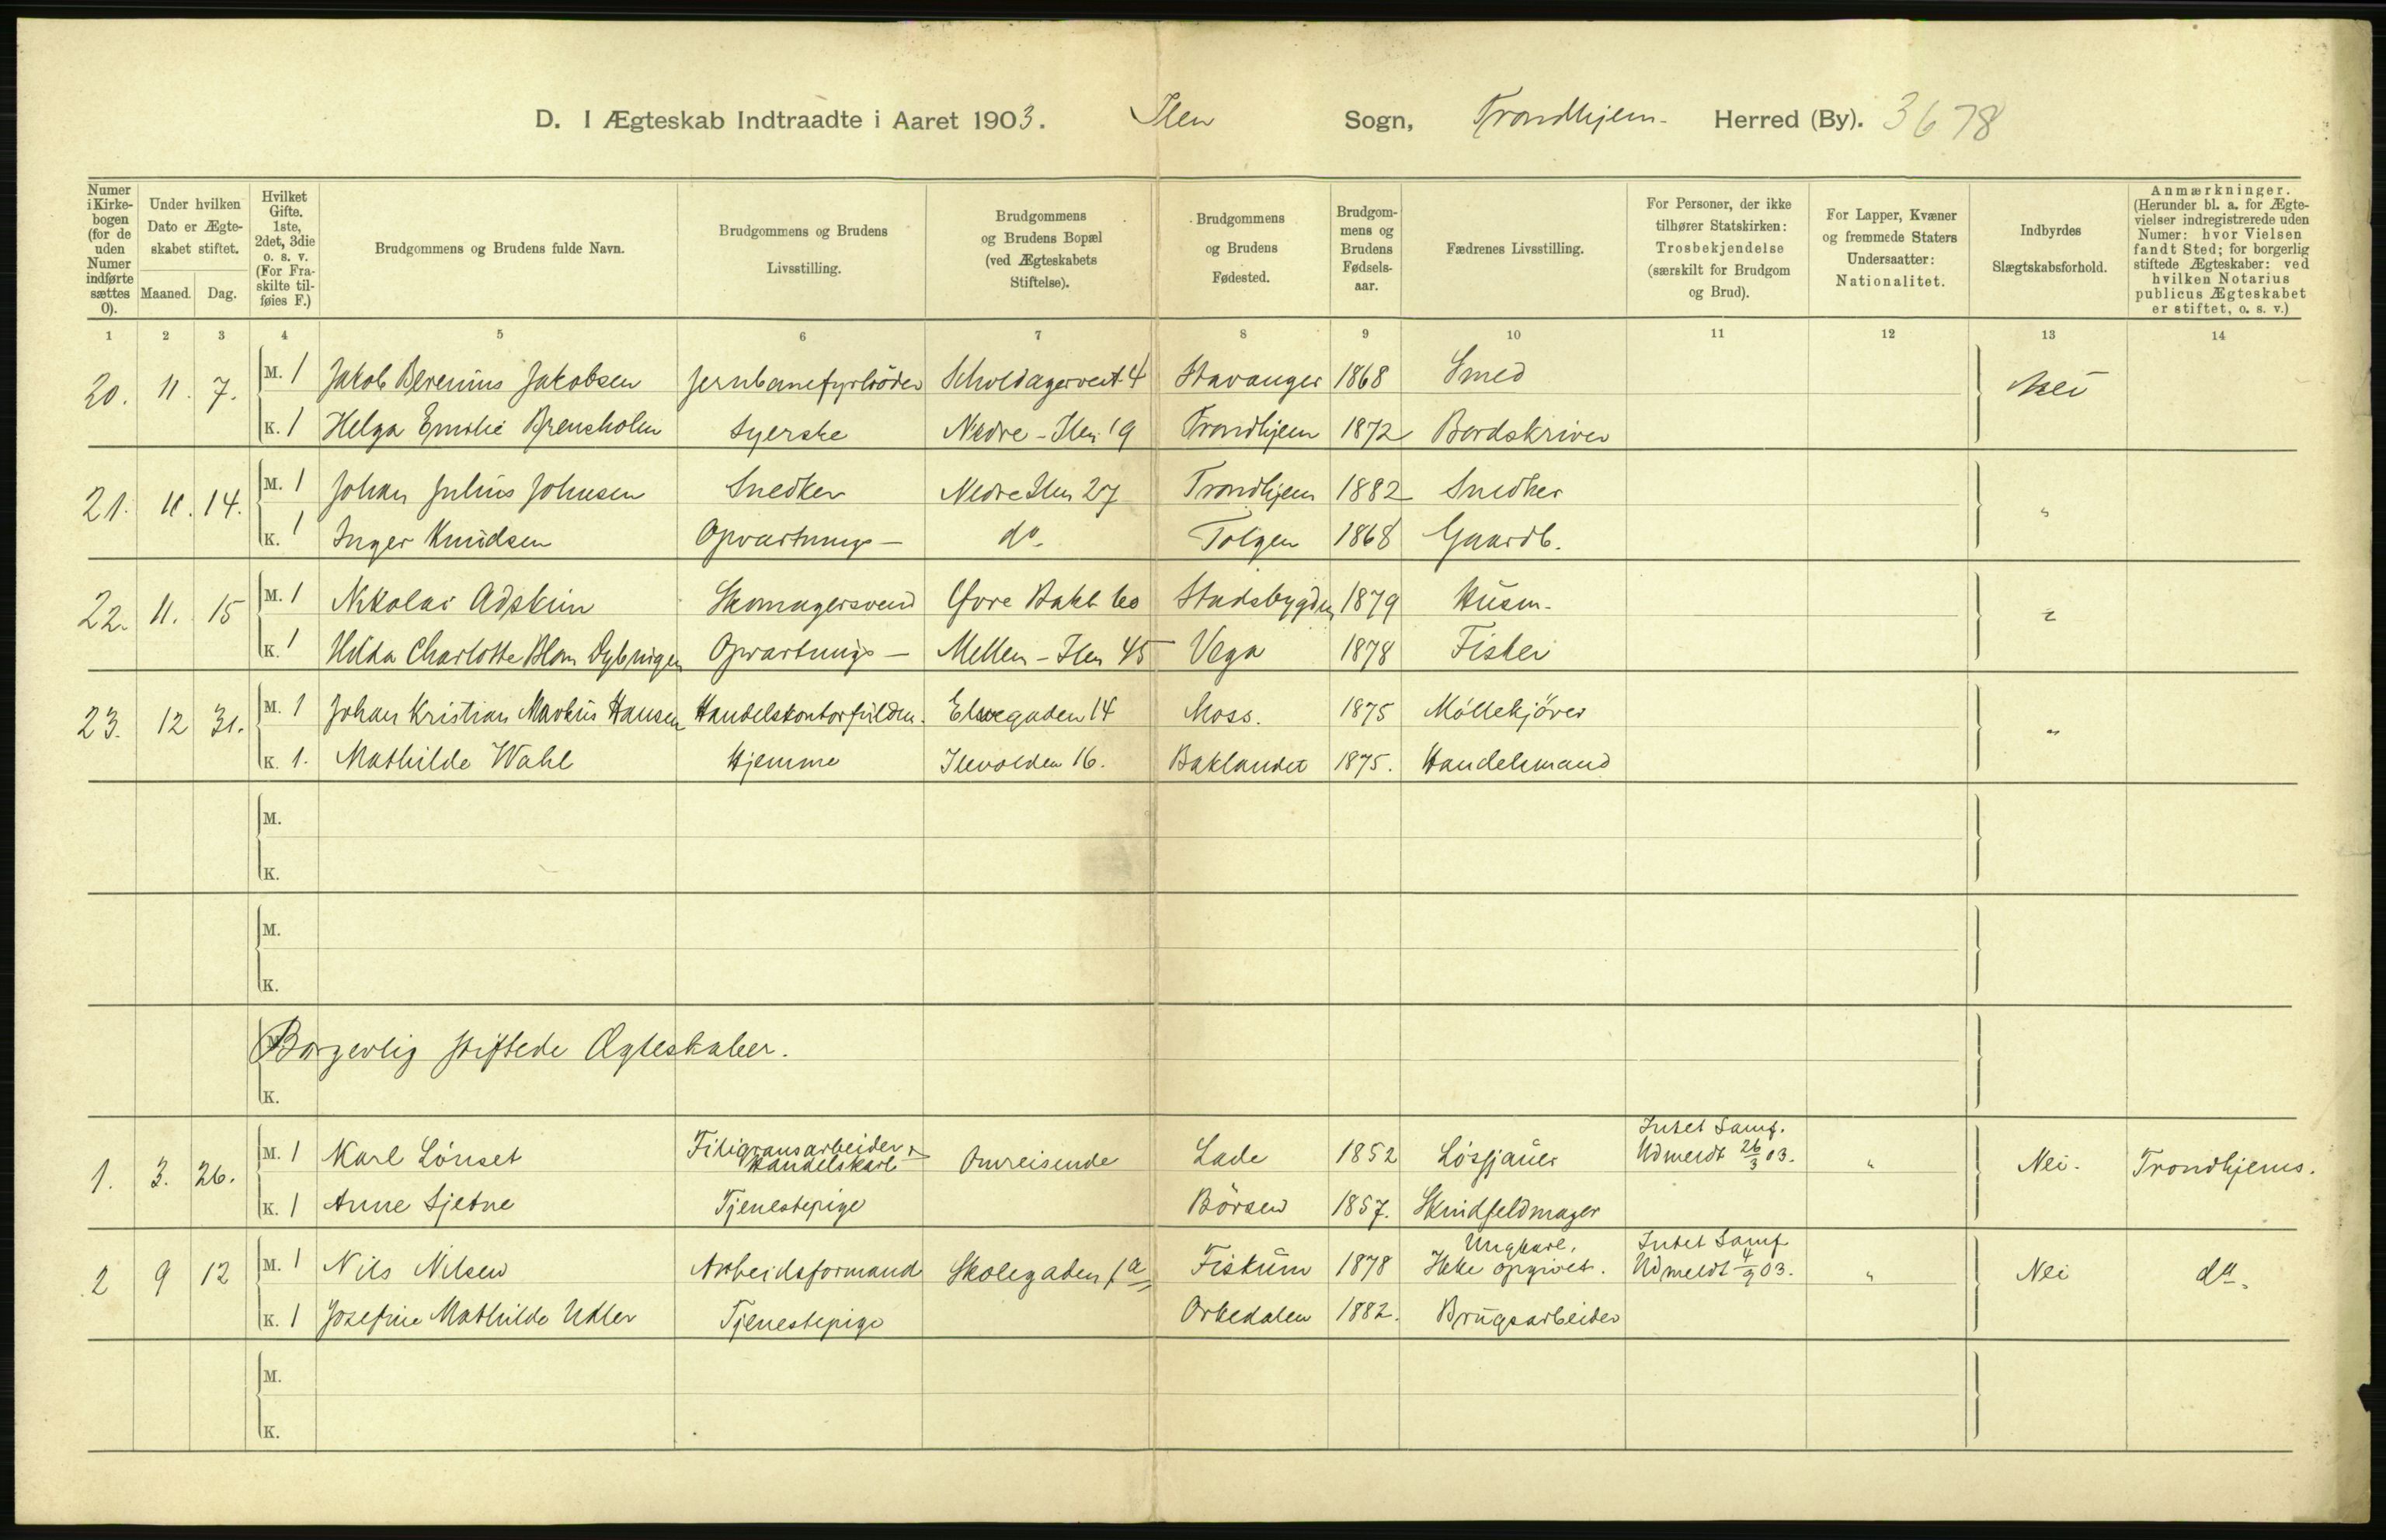 D. I Ægteskab Indtraadte i Aaret 1903. Ilen Sogn, Trondhjem. Herred (By). 3678
Numer i Kirke-bogen (for de uden Numer indførte sættes 0).
Under hvilken Dato er Ægte-skabet stiftet.
Maaned. Dag.
Hvilket Gifte. 1ste, 2det, 3die o. s. v. (For Fra-skilte til-føies F.)
Brudgommens og Brudens fulde Navn.
Brudgommens og Brudens Livsstilling.
Brudgommens og Brudens Bopæl (ved Ægteskabets Stiftelse).
Brudgommens og Brudens Fødested.
Brudgom-mens og Brudens Fødsels-aar.
Fædrenes Livsstilling.
For Personer, der ikke tilhører Statskirken: Trosbekjendelse (særskilt for Brudgom og Brud).
For Lapper, Kvæner og fremmede Staters Undersaatter: Nationalitet.
Indbyrdes Slægtskabsforhold.
Anmærkninger. (Herunder bl. a. for Ægte-vielser indregistrerede uden Numer: hvor Vielsen fandt Sted; for borgerlig stiftede Ægteskaber: ved hvilken Notarius publicus Ægteskabet er stiftet, o. s. v.)
1 2 3 4 5 6 7 8 9 10 11 12 13 14
20. 11. 7. M. 1 Jakob Berenius Jakobsen Jernbanefyrböder 4 Stavanger 1868 Smed Nei
K. 1 Helga Emilie Syerske Nedre-Ilen 19 Trondhjem 1872 Bordskriver
21. 11. 14. M. 1 Johan Julius Johnsen Snedker Nedre Ilen 27 Trondhjem 1882 Snedker "
K. 1 Inger Knudsen Opvartnings- do. Tolgen 1868 Gaardb.
22. 11. 15 M. 1 Nikolai Adskim Skomagersvend Øvre Bakl. 60 Stadsbygden 1879 Husm. "
K. 1 Hilda Charlotte Blom Dybvigen Opvartnings- Mellem-Ilen 45 Vega 1878 Fisker
23. 12 31. M. 1 Johan Kristian Markus Hansen Handelskontorfuldm. Elvegaden 14 Moss. 1875 Möllekjörer "
K. 1. Mathilde Wahl Hjemme Ilevolden 16. Baklandet 1875. Handelsmand
M.
K.
M.
K.
M. Borgerlig stiftede Ægteskaber.
K.
1. 3. 26. M. 1 Karl Lönset Filigransarbeider & Handelskarl Omreisende Lade 1852 Lössjauer Intet Samf. Udmeldt 26/3 03. " Nei. Trondhjems.
K. 1 Anne Sjetne Tjenestepige Börsen 1857. Skindfeldmager
2 9 12 M. 1 Nils Nilsen Arbeidsformand Skolegaden 1a Fiskum 1878 Ungkarl. Ikke opgivet. Intet Samf Udmeldt 4/9 03. " Nei do.
K. 1 Josefine Mathilde Utler Tjenestepige Orkedalen 1882. Brugsarbeider
M.
K.